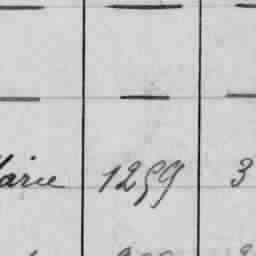 — — —
— — —
arie 1259 3